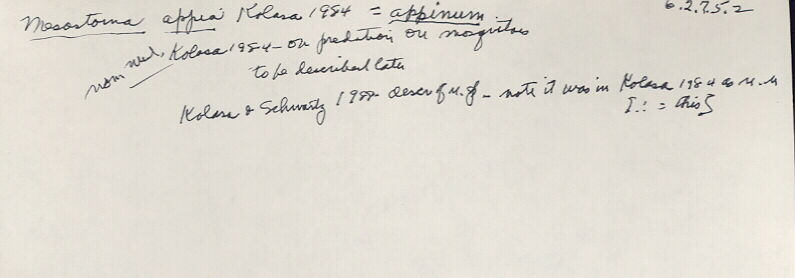 6.2.7.5.2
Mesostoma appia Kolasa 1984 = appinum
nom nud. Kolasa 1984 - on predation on mosquitoes
to be described later
Kolasa & Schwartz 1988 descr of n.sp. - note it was in Kolasa 1984 as n.n
[∴ = this]